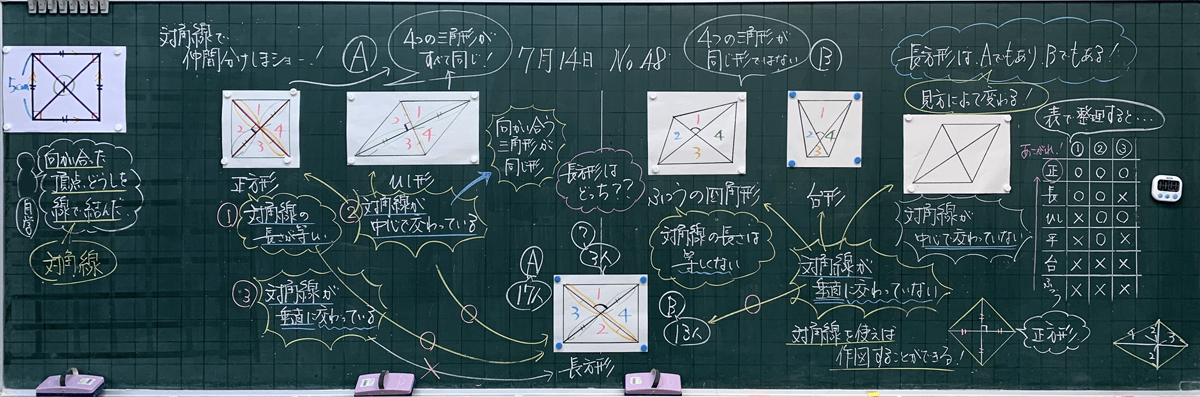 5cm
向かい合った
頂点どうしを
線で結んだ
対角線
対角線で
仲間分けしまショー!
A
4つの三角形が
すべて同じ!
7月14日 No.48
4つの三角形が
同じ形ではない
B
長方形はAでもありBでもある!
見方によって変わる!
1
2
4
3
正方形
1
2
4
3
ひし形
向かい合う
三角形が
同じ形
① 対角線の
長さが等しい
② 対角線が
中心で交わっている
③ 対角線が
垂直に交わっている
長方形は
どっち??
?
3人
A
17人
B
13人
1
3
4
2
長方形
1
2
4
3
ふつうの四角形
対角線の長さは
等しくない
1
2
4
3
台形
対角線が
垂直に交わっていない
対角線が
中心で交わっていない
対角線を使えば
作図することができる!
正方形
4
2
3
2
表で整理すると…
あこがれ!
① ② ③
正 ○ ○ ○
長 ○ ○ ×
ひし × ○ ○
平 × ○ ×
台 × × ×
ふつう × × ×